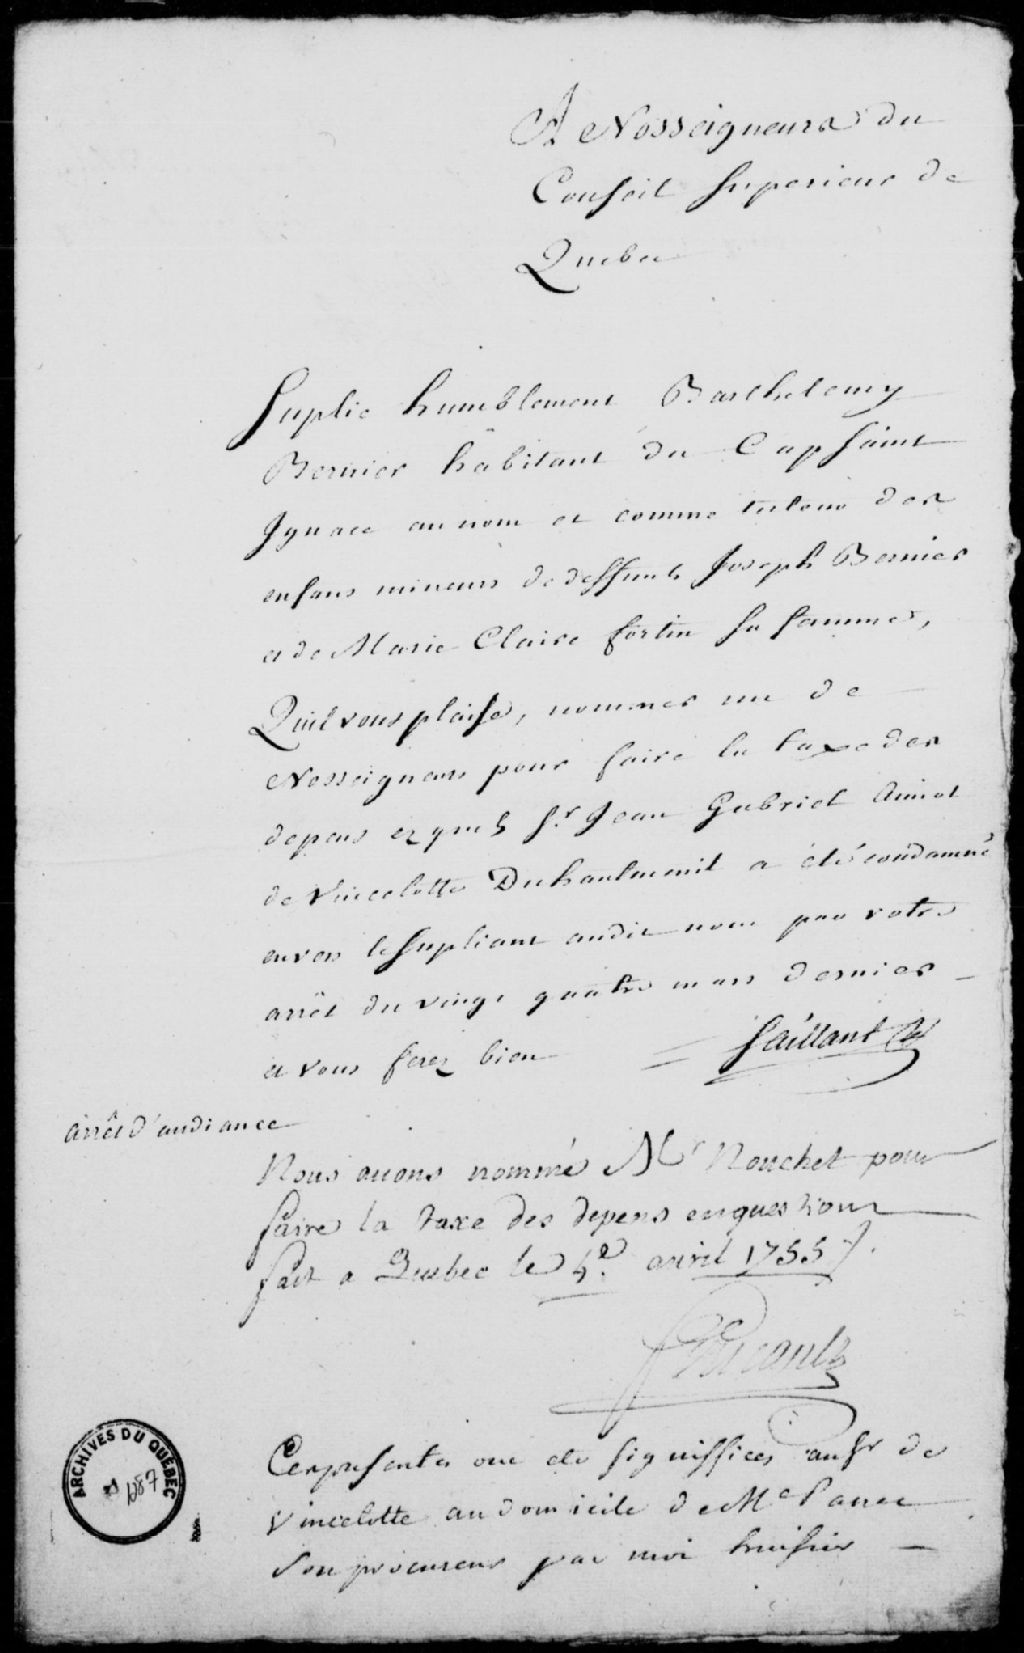 A Nosseigneurs du
Conseil superieur de
Quebec
Suplie humblement Barthelemy
Bernier habitant du Cap saint
Ignace au nom et comme tuteur des
enfans mineurs de deffunts Joseph Bernier
et de Marie Claire fortin sa femme,
Quil vous plaise, nommer un de
Nosseigneurs pour faire la taxe des
depens ezquels Sr. Jean Gabriel Amiot
de Vincelotte Duhautmenil a été condamné
envers le supliant audit nom par votre
arrêt du vingt quatre mars dernier
et vous ferez bien Saillant
arrêt d'audiance
Nous avons nommé Mr Nouchet pour
faire la taxe des depens en question
fait a Quebec le 4e. avril 1755 /.
Ces presentes ont ete signiffiees au Sr de
Vincelotte au domicile de Me Panet
Son procureur par moi huissier
ARCHIVES DU QUÉBEC